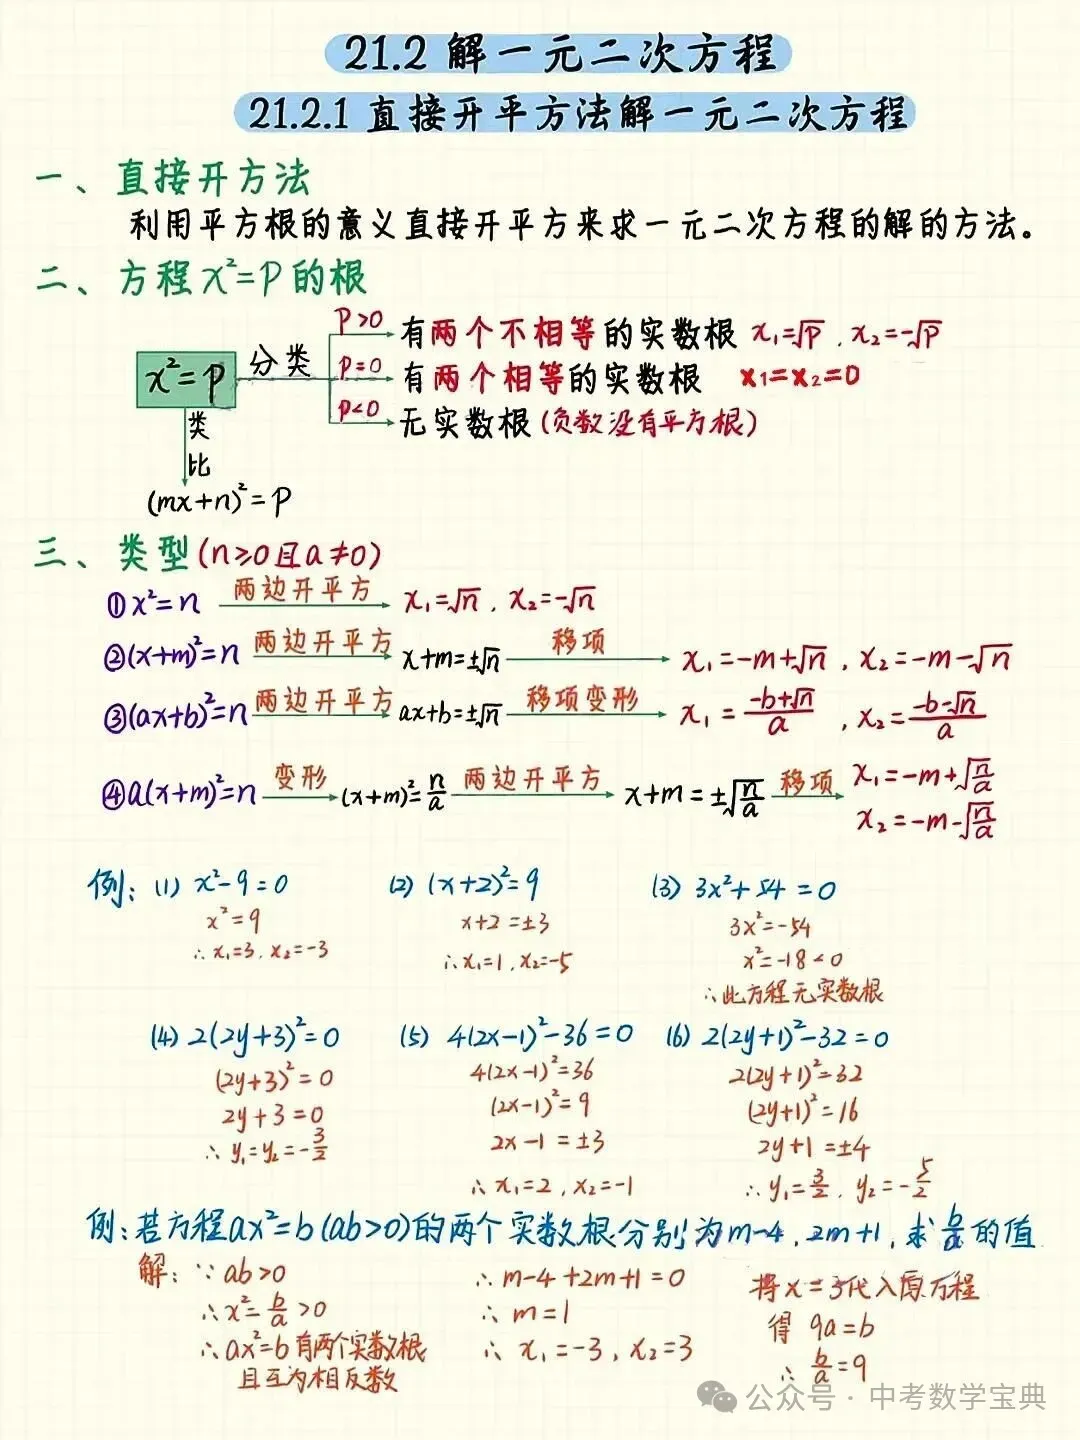 21.2 解一元二次方程
21.2.1 直接开平方法解一元二次方程
一、直接开方法
利用平方根的意义直接开平方来求一元二次方程的解的方法。
二、方程x²=P的根
x²=p 分类
P>0 有两个不相等的实数根 x₁=√p，x₂=-√p
P=0 有两个相等的实数根 x₁=x₂=0
P<0 无实数根(负数没有平方根)
类比
(mx+n)²=P
三、类型(n≥0且a≠0)
①x²=n 两边开平方 x₁=√n，x₂=-√n
②(x+m)²=n 两边开平方 x+m=±√n 移项 x₁=-m+√n，x₂=-m-√n
③(ax+b)²=n 两边开平方 ax+b=±√n 移项变形 x₁=(-b+√n)/a，x₂=(-b-√n)/a
④a(x+m)²=n 变形 (x+m)²=n/a 两边开平方 x+m=±√(n/a) 移项 x₁=-m+√(n/a)
x₂=-m-√(n/a)
例：(1) x²-9=0
x²=9
∴x₁=3，x₂=-3
(2) (x+2)²=9
x+2=±3
∴x₁=1，x₂=-5
(3) 3x²+54=0
3x²=-54
x²=-18<0
∴此方程无实数根
(4) 2(2y+3)²=0
(2y+3)²=0
2y+3=0
∴y₁=y₂=-3/2
(5) 4(2x-1)²-36=0
4(2x-1)²=36
(2x-1)²=9
2x-1=±3
∴x₁=2，x₂=-1
(6) 2(2y+1)²-32=0
2(2y+1)²=32
(2y+1)²=16
2y+1=±4
∴y₁=3/2，y₂=-5/2
例：若方程ax²=b(ab>0)的两个实数根分别为m-4，2m+1，求b/a的值
解：∵ab>0
∴x²=b/a>0
∴ax²=b有两个实数根
且互为相反数
∴m-4+2m+1=0
∴m=1
∴x₁=-3，x₂=3
将x=3代入原方程
得 9a=b
∴b/a=9
公众号·中考数学宝典